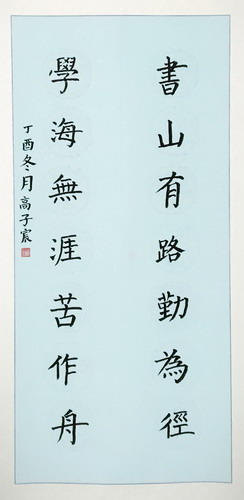 書山有路勤為徑
學海無涯苦作舟
丁酉冬月高子宸